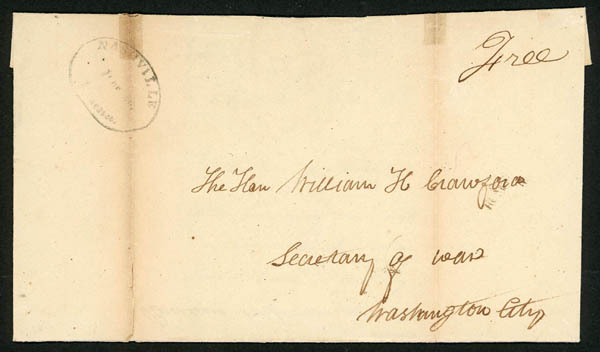 NASHVILLE
Free
The Hon William H Crawford
Secretary of war
Washington City